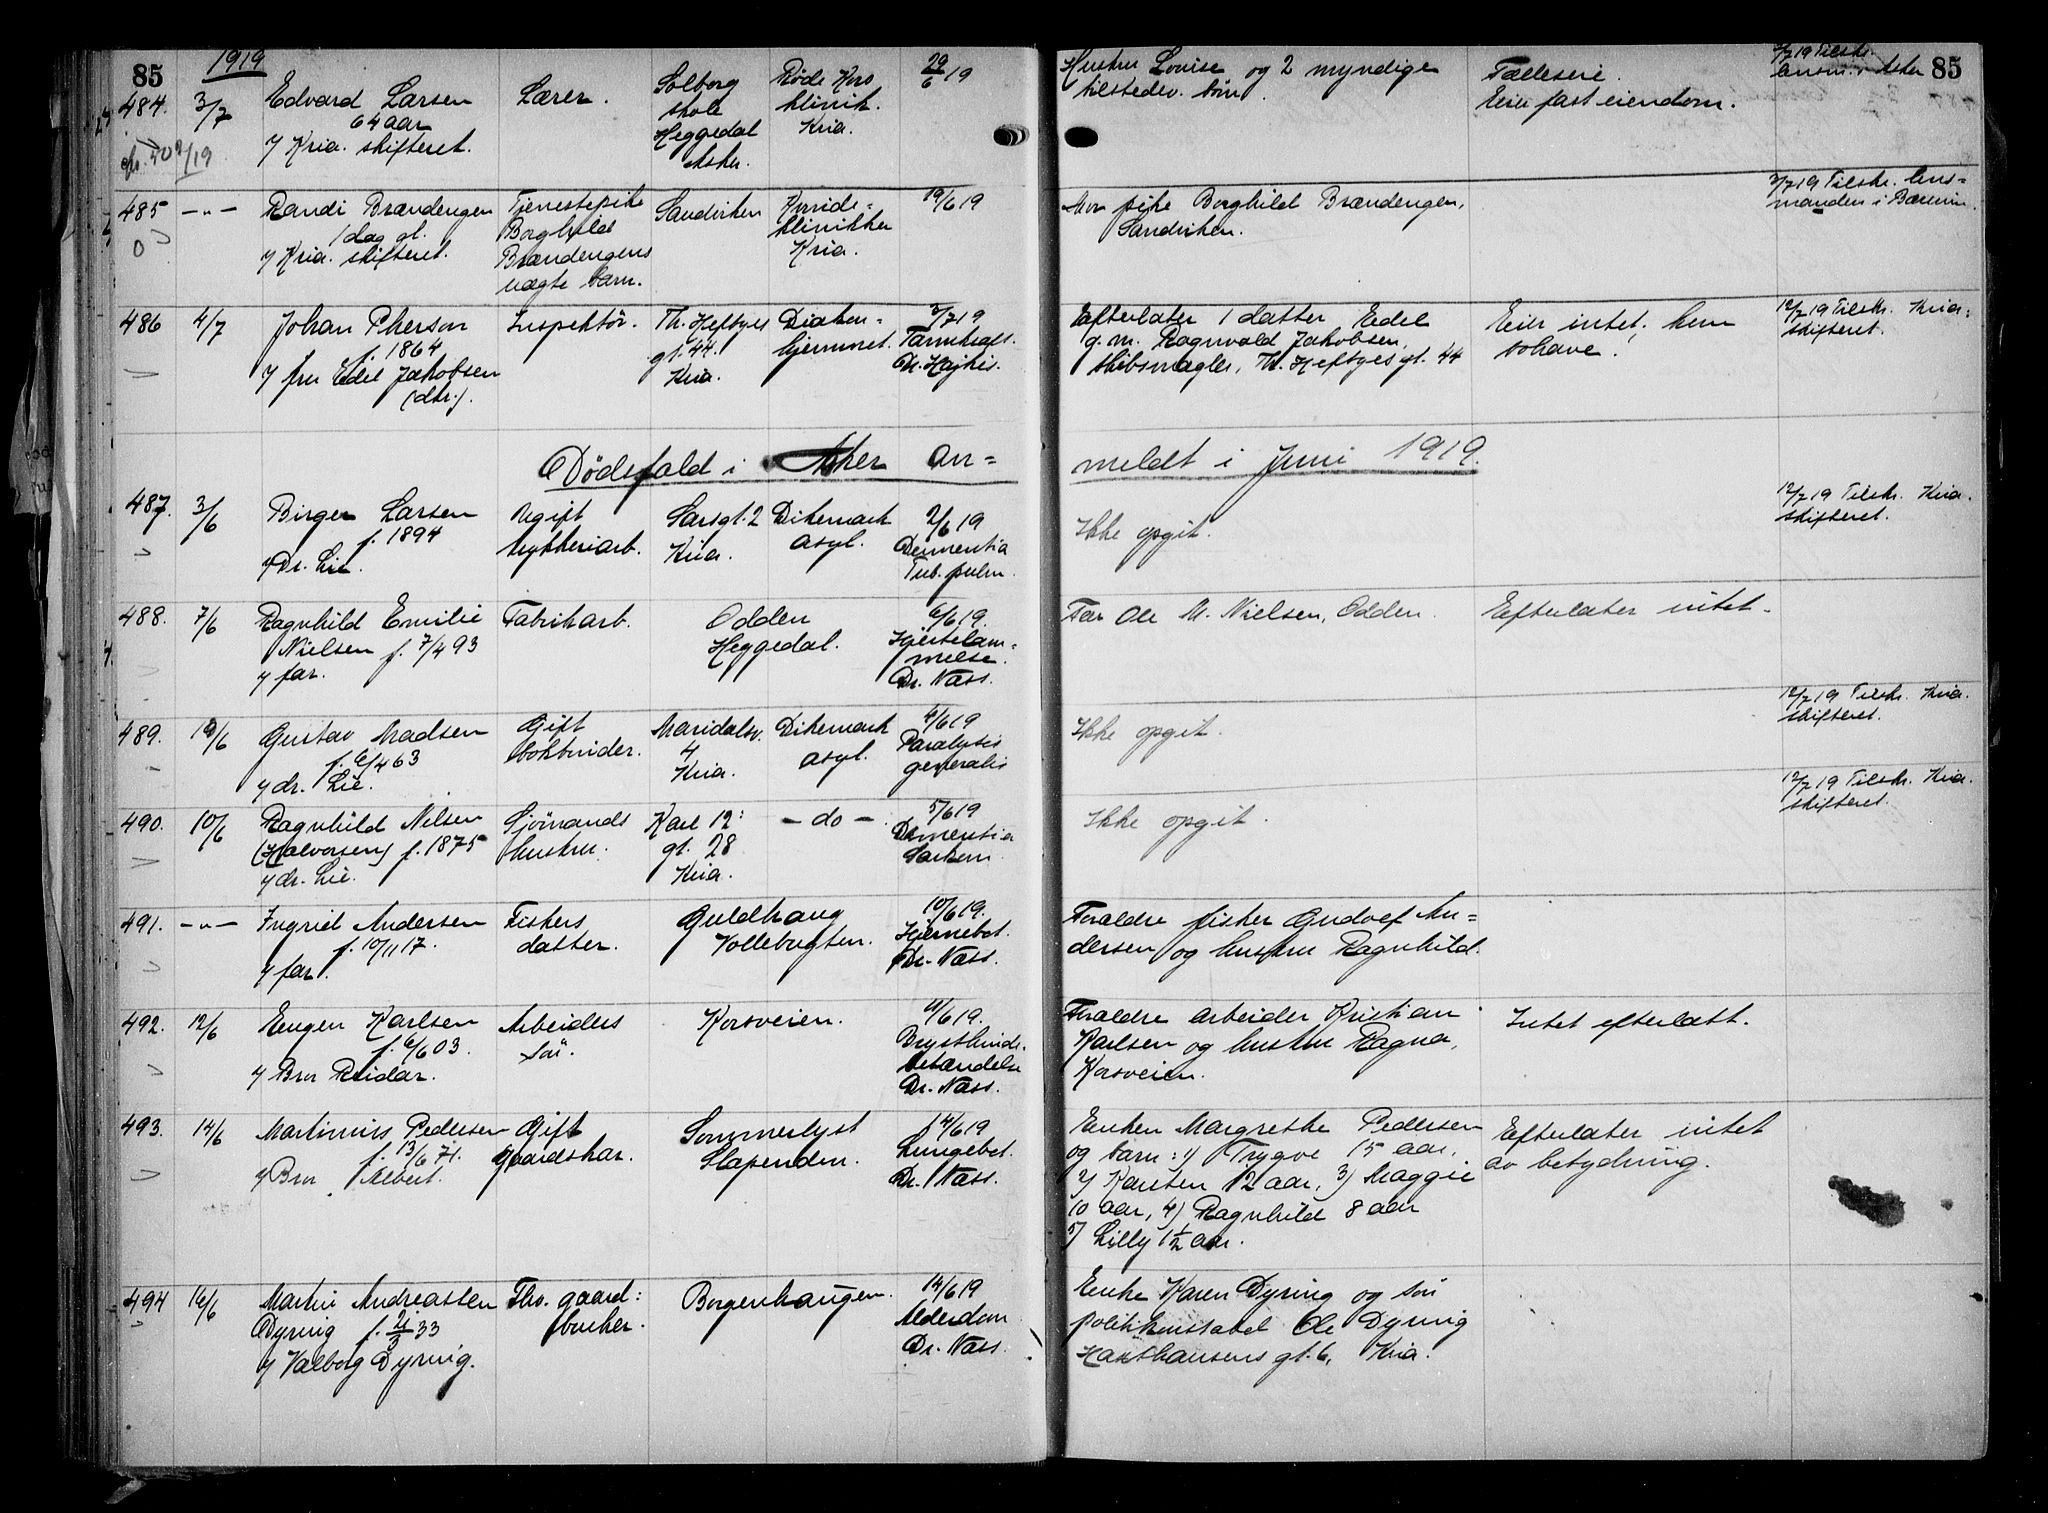 85
1919
484. 3/7 Edvard Larsen Lærer. Solborg Røde Kors 29/6 19 Hustru Louise og 2 myndige Fælleseie. 3/7 19 Tilskr. 85
64 aar skole klinik. tilstedev. børn. Eier fast eiendom. lensm. i Asker
v/ Kria. skifteret. Heggedal Kria.
Asker.
485 —"— Randi Brændengen Tjenestepike Sandviken Kvinde= 19/6 19 Mor pike Borghild Brændengen, 3/7 19 Tilskr. lens=
0 1 dag gl. Borghild klinikken Sandviken. manden i Bærum.
v/ Kria. skifteret. Brændengens Kria.
uægte barn.
486 4/7 Johan Pherson Inspektør. Th. Heftyes Diakon= 3/7 19 Efterlater 1 datter Edel Eier intet; kun 12/7 19 Tilskr. Kria.
f. 1864 gt. 44. hjemmet. g. m. Ragnvald Jakobsen, bohave. skifteret.
v/ fru Edel Jakobsen Kria. skibsmægler, Th. Heftyesgt. 44
(dtr.).
Dødsfald i Asker an=
meldt i Juni 1919.
487. 3/6 Birger Larsen Ugift Sarsgt. 2 Dikemark 2/6 19 Ikke opgit. 12/7 19 Tilskr. Kria.
f. 1894 trykkeriarb. Kria. asyl. Dementia skifteret.
v/ Dr. Lie. Tub. pulm.
488. 7/6 Ragnhild Emilie Fabrikarb. Odden 6/6 19. Far Ole M. Nielsen, Odden. Efterlater intet.
Nielsen f. 7/4 93 Heggedal. Hjertelam=
v/ far. melse.
Dr. Næss.
489. 10/6 Gustav Madsen Gift Maridalsv. Dikemark 6/6 19 Ikke opgit. 12/7 19 Tilskr. Kria.
f. 6/4 63 bokbinder. 4 asyl. Paralysis skifteret.
v/ dr. Lie. Kria. generalis
490. 10/6 Ragnhild Nilsen Sjømands Karl 12: — do — 5/6 19 Ikke opgit. 12/7 19 Tilskr. Kria.
(Halvorsen) f. 1875 hustru. gt. 28 Dementia skifteret.
v/ dr. Lie. Kria.
491. —"— Ingrid Andersen Fiskers Guldhaug 10/6 19. Forældre fisker Gudolf An=
f. 10/11 17. datter. Vollebugten. Hjernebet. dersen og hustru Ragnhild.
v/ far. Dr. Næss.
492. 12/6 Eugen Karlsen Arbeiders Korsveien. 11/6 19. Forældre arbeider Kristian Intet efterlatt.
f. 6/6 03. søn. Brysthinde- Karlsen og hustru Ragna,
v/ Bror Reidar. betændelse Korsveien.
Dr. Næss.
493. 14/6 Martinius Pedersen Gift Sommerlyst 14/6 19 Enken Margrethe Pedersen Efterlater intet
f. 13/6 71. gaardskar. Slependen. Lungebet. og barn: 1) Trygve 15 aar, av betydning.
v/ Bror Albert. Dr. Næss. 2) Karsten 12 aar, 3) Maggie
10 aar, 4) Ragnhild 8 aar
5) Lilly 1 1/2 aar.
494 16/6 Martin Andreassen Fhv. gaard: Borgenhaugen. 14/6 19 Enke Karen Dyring og søn
Dyring f. 4/3 33 bruker. Alderdom politikonstabel Ole Dyring
v/ Valborg Dyring. Dr. Næss. Haxthausensgt. 6, Kria.